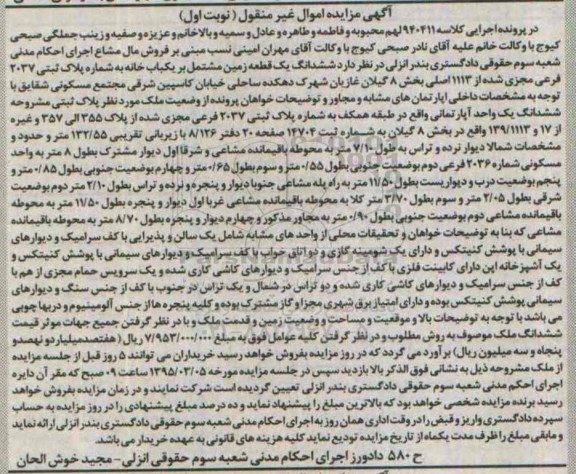 آگهی مزایده اموال غیر منقول ( نوبت اول)
در پرونده اجرایی کلاسه ۹۴۰۴۱۱ لهم محبوبه و فاطمه و طاهره و عادل و سمیه و بالاخانم و عزیزه و صفیه و زینب جملگی صبحی
کیوج با وکالت خانم علیه آقای نادر صبحی کیوج با وکالت آقای مهران امینی نسب مبنی بر فروش مال مشاع اجرای احکام مدنی
شعبه سوم حقوقی دادگستری بندر انزلی در نظر دارد ششدانگ یک قطعه زمین مشتمل بر یکباب خانه به شماره پلاک ثبتی ۲۰۳۷
فرعی مجزی شده از ۱۱۱۳ اصلی بخش ۸ گیلان غازیان شهرک دهکده ساحلی خیابان کاسپین شرقی مجتمع مسکونی شقایق با
توجه به مشخصات داخلی اپارتمان های مشابه و مجاور و توضیحات خواهان پرونده از وضعیت ملک مورد نظر پلاک ثبتی مشروحه
ششدانگ یک واحد آپارتمانی واقع در طبقه همکف به شماره پلاک ثبتی ۲۰۳۷ فرعی مجزی شده از پلاک ۳۵۵ الی ۳۵۷ و غیره
از ۱۷ و ۱۳۹/۱۱۱۳ واقع در بخش ۸ گیلان به شماره ثبت ۱۴۷۰۴ صفحه ۲۰ دفتر ۸/۱۲۶ با زیربنای تقریبی ۱۳۲/۵۵ متر و حدود و
مشخصات شمالا دیوار نرده و تراس به طول ۷/۱۰ متر به محوطه باقیمانده مشاعی و شرقا اول دیوار مشترک بطول ۸ متر به واحد
مسکونی شماره ۲۰۳۶ فرعی دوم بوضعیت جنوبی بطول ۰/۵۵ متر و سوم بطول ۰/۶۵ متر و چهارم بوضعیت جنوبی بطول ۰/۸۵ متر و
پنجم بوضعیت درب و دیواریست بطول ۱۱/۵۰ متر به راه پله مشاعی جنوبا دیوار و پنجره و نرده و تراس بطول ۲/۱۰ متر دوم بوضعیت
شرقی بطول ۲/۰۵ متر و سوم بطول ۳/۷۰ متر کلا به محوطه باقیمانده مشاعی غربا اول دیوار و پنجره بطول ۱۱/۵۰ متر به محوطه
باقیمانده مشاعی دوم بوضعیت جنوبی بطول ۰/۹۰ متر به مجاور مذکور و چهارم دیوار و پنجره بطول ۸/۷۰ متر به محوطه باقیمانده
مشاعی که بنا به توضیحات خواهان و تحقیقات محلی از واحد های مشابه شامل یک سالن و پذیرایی با کف سرامیک و دیوارهای
سیمانی با پوشش کنیتکس و دارای یک شومینه گازی و دو اتاق خواب با کف سرامیک و دیوارهای سیمانی با پوشش کنیتکس و
یک آشپزخانه اپن دارای کابینت فلزی با کف از جنس سرامیک و دیوارهای کاشی کاری شده و یک سرویس حمام مجزی از هم با
کف از جنس سرامیک و دیوارهای کاشی کاری شده و دو تراس در شمال و یک تراس در جنوب با کف از جنس سنگ و دیوارهای
سیمانی پوشش کنیتکس بوده و دارای امتیاز برق شهری مجزا و گاز مشترک بوده و کلیه پنجره ها از جنس آلومینیوم و دربها چوبی
می باشد با توجه به توضیحات بالا و موقعیت و مساحت و وضعیت زمین و قدمت ملک و با در نظر گرفتن جمیع جهات موثر قیمت
ششدانگ ملک موصوف به روش مطلوب و در نظر گرفتن کلیه عوامل فوق به مبلغ ۷/۹۵۳/۰۰۰/۰۰۰ ریال (هفتصدمیلیارد و نهصدو
پنجاه و سه میلیون ریال) بر آورد می گردد که در روز مزایده بفروش خواهد رسید خریداران می توانند ۵ روز قبل از جلسه مزایده
از ملک مشروحه ذیل به نشانی فوق الذکر بالا بازدید سپس در جلسه مزایده مورخه ۱۳۹۵/۰۳/۰۵ ساعت ۰۹ صبح که مقر آن دایره
اجرای احکم مدنی شعبه سوم حقوقی دادگستری بندر انزلی تعیین گردیده است شرکت نمایند و در زمان مزایده بفروش خواهد
رسید برنده مزایده شخصی خواهد بود که بالاترین مبلغ را پیشنهاد نماید و ده درصد مبلغ پیشنهادی را در روز مزایده به حساب
سپرده دادگستری واریز و قبض را در وقت اداری همان روز به اجرای احکام مدنی شعبه سوم حقوقی دادگستری بندر انزلی ارائه نماید
و مابقی مبلغ را ظرف مدت یکماه از تاریخ مزایده تودیع نماید کلیه هزینه های قانونی به عهده خریدار می باشد.
ح ۵۸۰ دادورز اجرای احکام مدنی شعبه سوم حقوقی انزلی- مجید خوش الحان